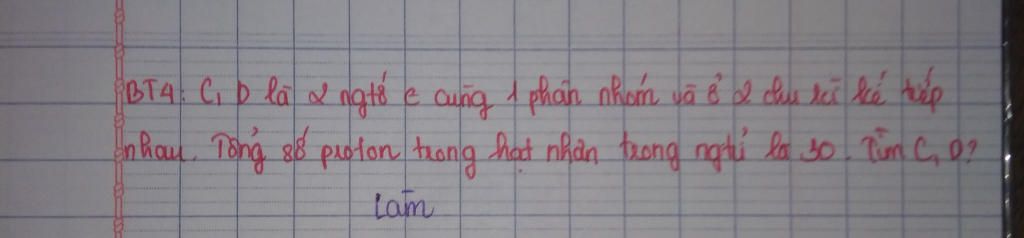 BT4: C, D là 2 ngtố € cùng 1 phân nhóm và ở 2 chu kì kế tiếp
nhau. Tổng số proton trong hạt nhân trong ngtử là 30. Tìm C, D?
Làm